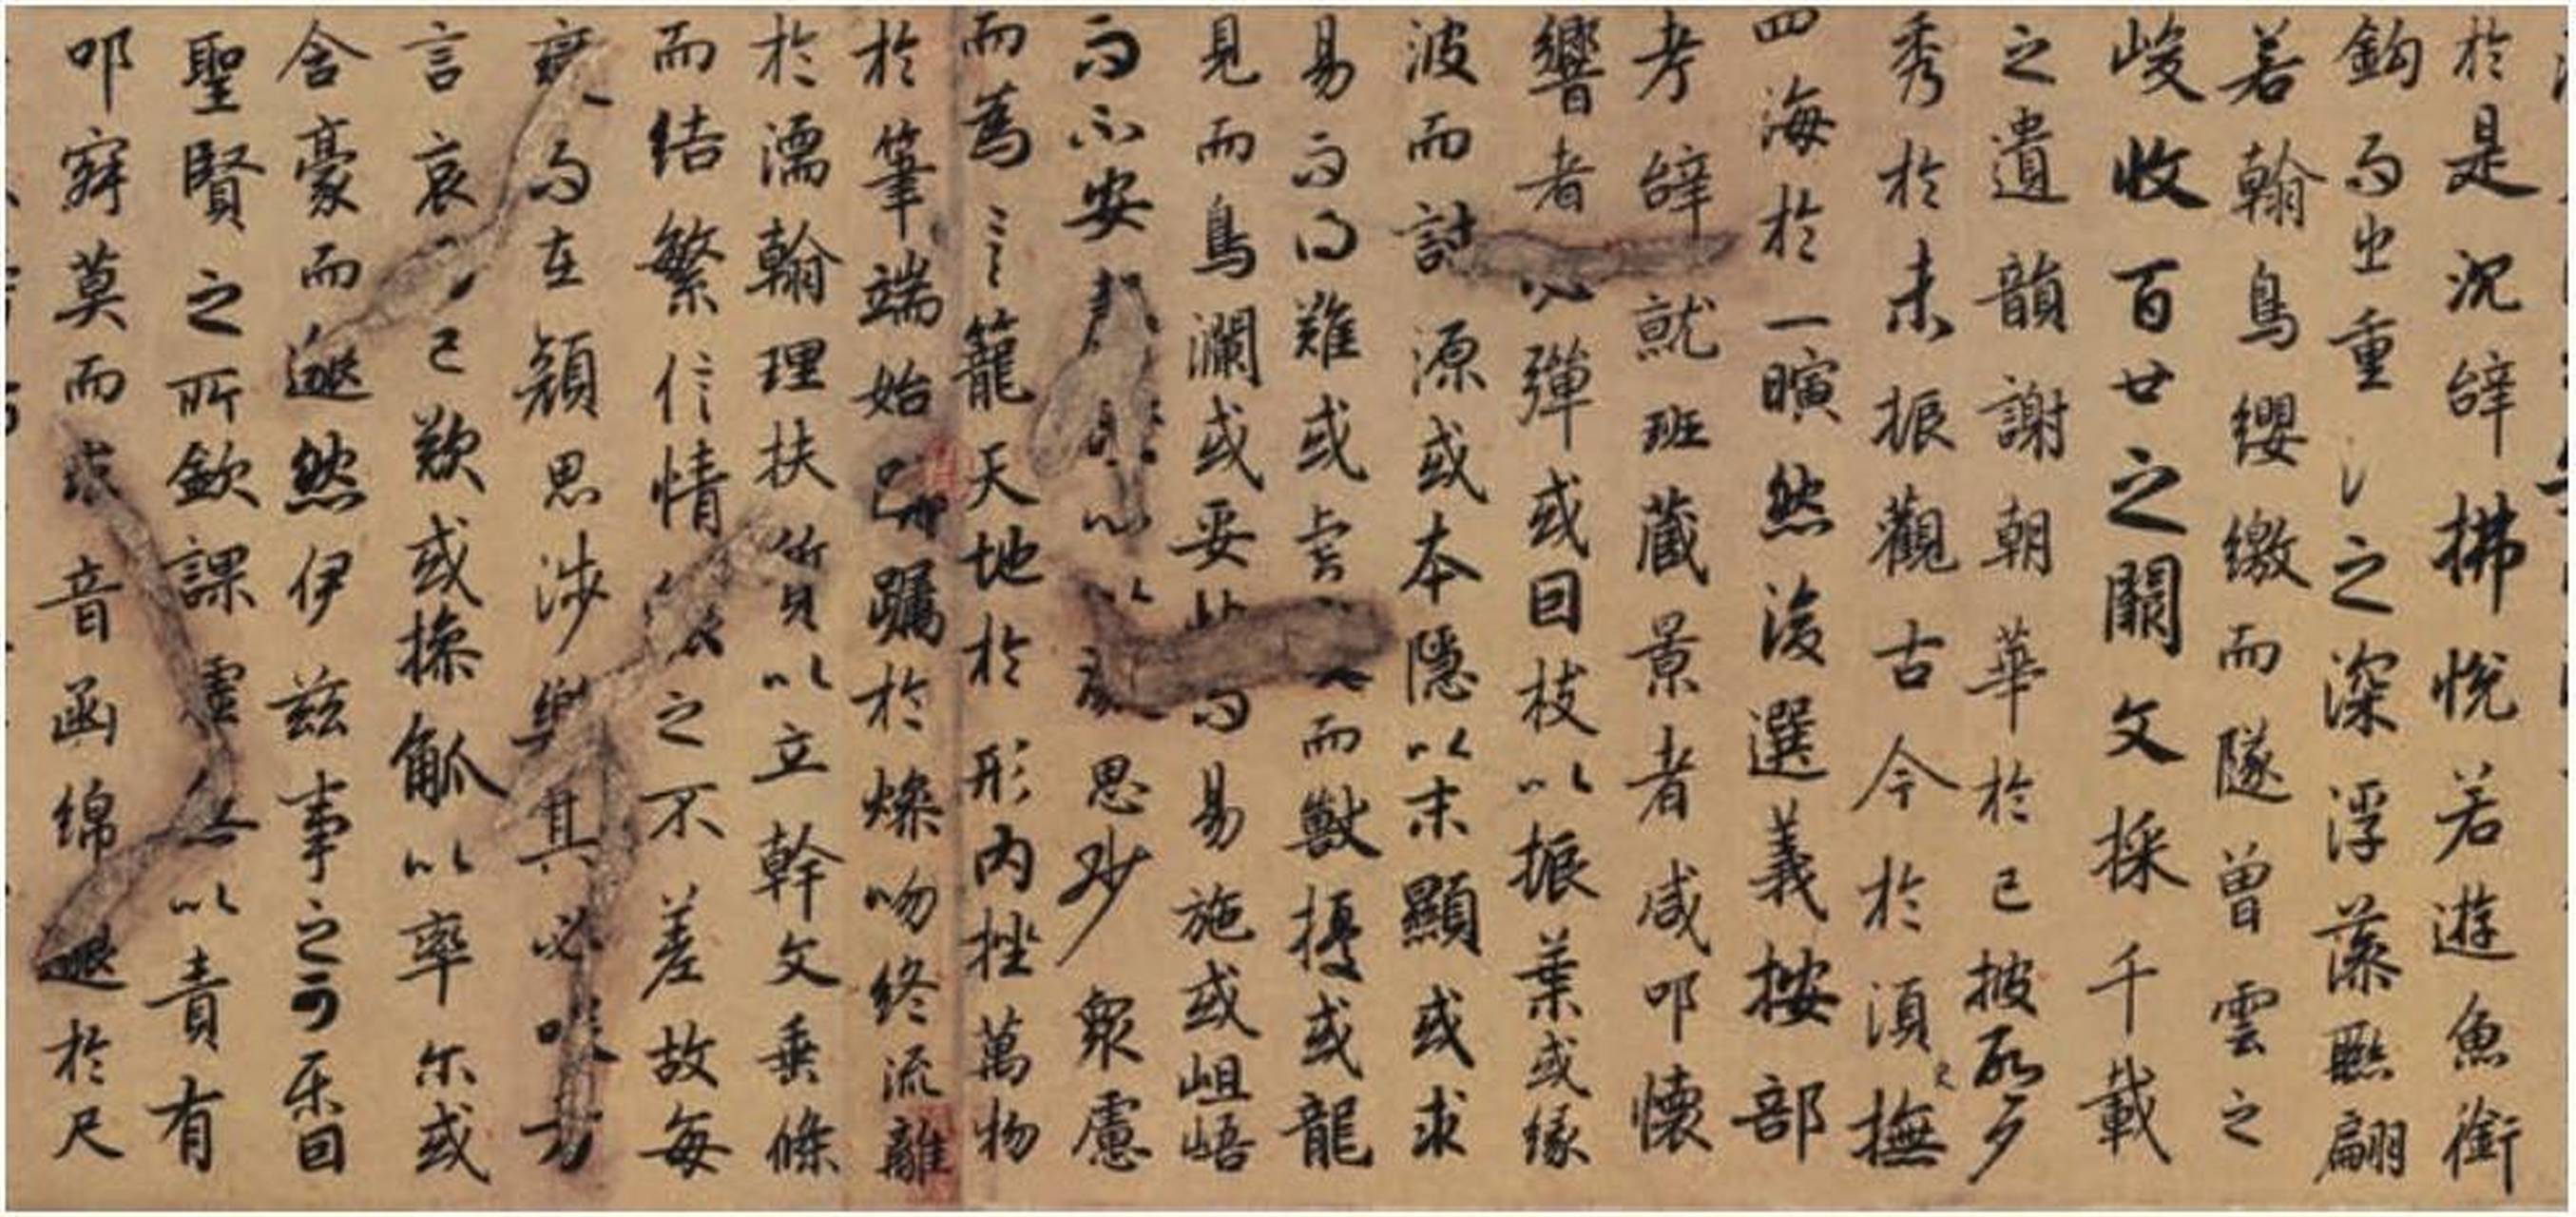 於是沉辞拂悅若遊魚銜
鈎而出重之深浮藻聯翩
若翰鳥纓繳而隧曾雲之
峻收百世之闕文採千載
之遺韻謝朝華於已披啟夕
秀於未振觀古今於須臾撫
四海於一瞚然後選義按部
考辞就班藏景者咸叩懷
響者必彈或因枝以振葉或緣
波而討源或本隱以末顯或求
易而得難或而獸擾或龍
見而鳥瀾或妥帖而易施或岨峿
而不安心以凝思眇衆慮
而為言籠天地於形內挫萬物
於筆端始躅於燥吻終流離
於濡翰理扶質以立幹文垂條
而結繁信情之不差故每
變而在顏思涉樂其必咲方
言哀已歎或操觚以率尔或
含豪而邈然伊茲事之可樂固
聖賢之所欽課虛無以責有
叩寂莫而求音函綿邈於尺